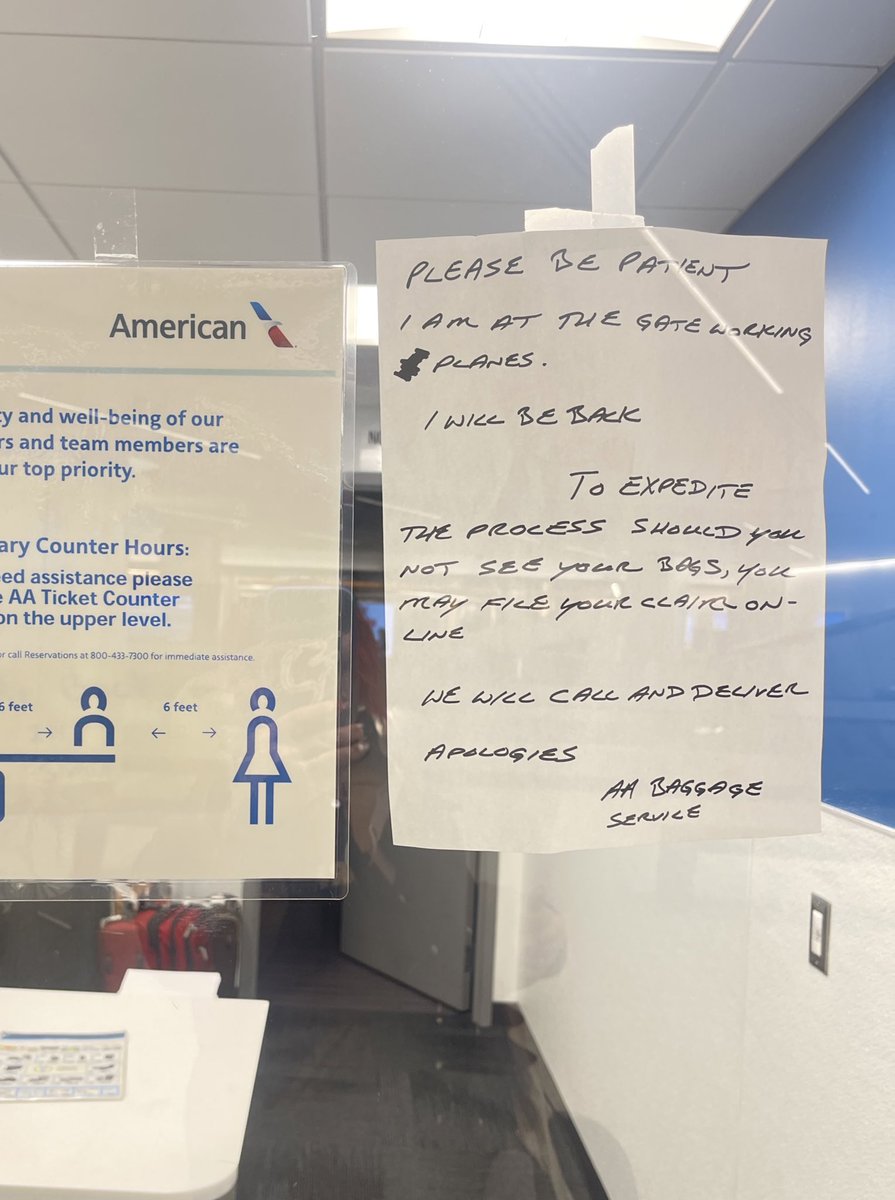 American
ty and well-being of our
rs and team members are
ur top priority.
ary Counter Hours:
eed assistance please
e AA Ticket Counter
on the upper level.
or call Reservations at 800-433-7300 for immediate assistance.
6 feet
6 feet
PLEASE BE PATIENT
I AM AT THE GATE WORKING
PLANES.
I WILL BE BACK
TO EXPEDITE
THE PROCESS SHOULD YOU
NOT SEE YOUR BAGS, YOU
MAY FILE YOUR CLAIM ON-
LINE
WE WILL CALL AND DELIVER
APOLOGIES
AA BAGGAGE
SERVICE